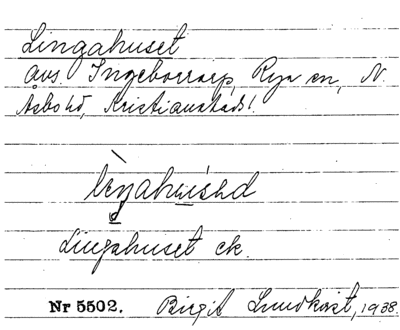 Lingahuset
avs. Ingeborrarp, Rya sn, N.
Åsbo hd, Kristianstads l.
Lingahuset ek.
Nr 5502. Birgit Lundkvist, 1938.